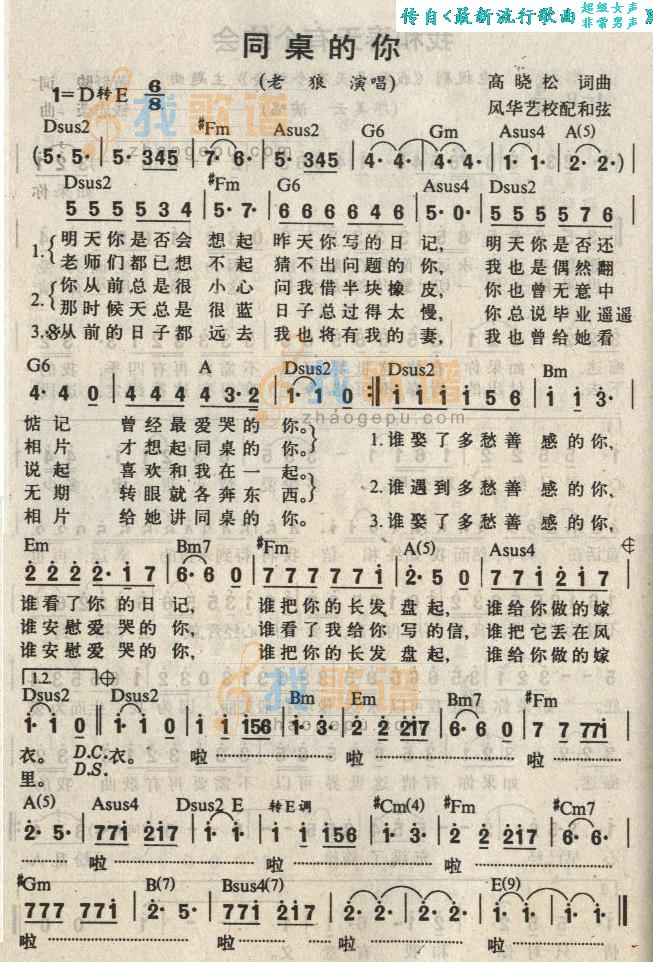 传自《最新流行歌曲 超级女声 非常男声》
同桌的你
(老狼 演唱)
高晓松 词曲
风华艺校配和弦
1=D转E 6/8
找歌谱
zhaogepu.com
Dsus2 #Fm Asus2 G6 Gm Asus4 A(5)
(5· 5· | 5· 345 | 7· 6· | 5· 345 | 4· 4· | 4· 4· | 1· 1· | 2· 2·)
Dsus2 #Fm G6 Asus4 Dsus2
5 5 5 5 3 4 | 5· 7· | 6 6 6 6 4 6 | 5· 0· | 5 5 5 5 7 6
1. 明天你是否会 想起 昨天你写的日 记, 明天你是否还
老师们都已想 不起 猜不出问题的 你, 我也是偶然翻
2. 你从前总是很 小心 问我借半块橡 皮, 你也曾无意中
那时候天总是 很蓝 日子总过得太 慢, 你总说毕业遥遥
3.𝄋从前的日子都 远去 我也将有我的 妻, 我也曾给她看
G6 A Dsus2 Dsus2 Bm
4· 4 0 | 4 4 4 4 3·2 | 1· 1 0 :| i i i i 5 6 | i i 3·
惦记 曾经最爱哭的 你。
相片 才想起同桌的 你。
说起 喜欢和我在一 起。
无期 转眼就各奔东 西。
相片 给她讲同桌的 你。
1.谁娶了多愁善 感的你,
2.谁遇到多愁善 感的你,
3.谁娶了多愁善 感的你,
Em Bm7 #Fm A(5) Asus4
2 2 2 2· i 7 | 6· 6 0 | 7 7 7 7 7 i | 2· 5 0 | 7 7 i 2 i 7
谁看了你 的日 记, 谁把你的长发 盘起, 谁给你做的嫁
谁安慰爱 哭的 你, 谁看了我给你 写的信, 谁把它丢在风
谁安慰爱 哭的 你, 谁把你的长发 盘起, 谁给你做的嫁
1.2.
Dsus2 Dsus2 Bm Em Bm7 #Fm
i· i 0 || i· i 0 | i i i56 | i· 3· | 2 2 2i7 | 6· 6 0 | 7 7 77i
衣。 D.C. 衣。 啦 啦 啦
里。 D.S.
A(5) Asus4 Dsus2 E 转E调 #Cm(4) #Fm #Cm7
2· 5· | 77i 2i7 | i· i· | i i i56 | i· 3· | 2 2 2i7 | 6· 6·
啦 啦 啦
#Gm B(7) Bsus4(7) E(9)
777 77i | 2· 5· | 77i 2i7 | 2· 2· | 2· 2· | i· i· | i· i· ||
啦 啦 啦